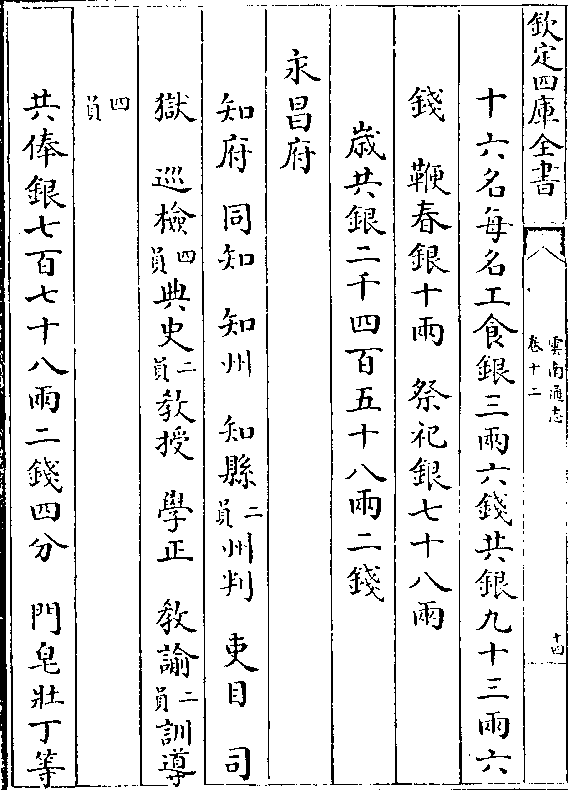 欽定四庫全書
雲南通志
卷十二
十四
十六名每名工食銀三兩六錢共銀九十三兩六
錢　鞭春銀十兩　祭祀銀七十八兩
歲共銀二千四百五十八兩二錢
永昌府
知府　同知　知州　知縣二員州判　吏目　司
獄　巡檢四員典史二員教授　學正　教諭二員訓導
四員
共俸銀七百七十八兩二錢四分　門皂壯丁等